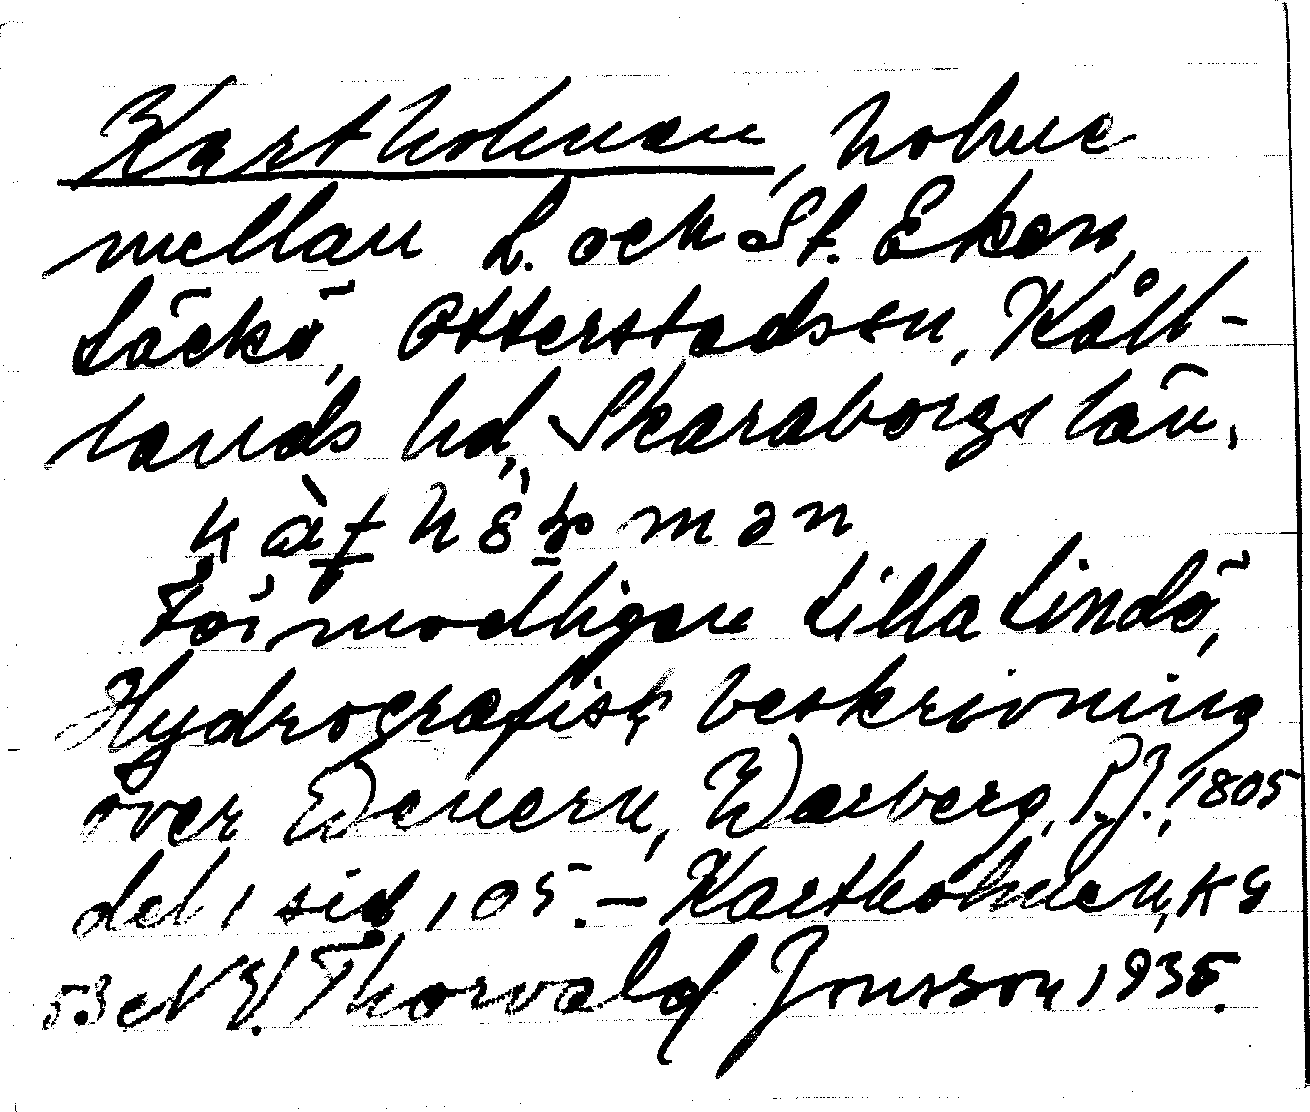 Kartholmen, holme
mellan L. och St. Eken,
Läckö, Otterstadssn, Kåll-
lands hd, Skaraborgs län.
Förmodligen Lilla Lindö,
Hydrografisk beskrivning
över Wenern, Warberg, P.J., 1805
del 1 sid 105. – Kartholmen, KG
53 c NV. Thorvald Jonsson, 1935.